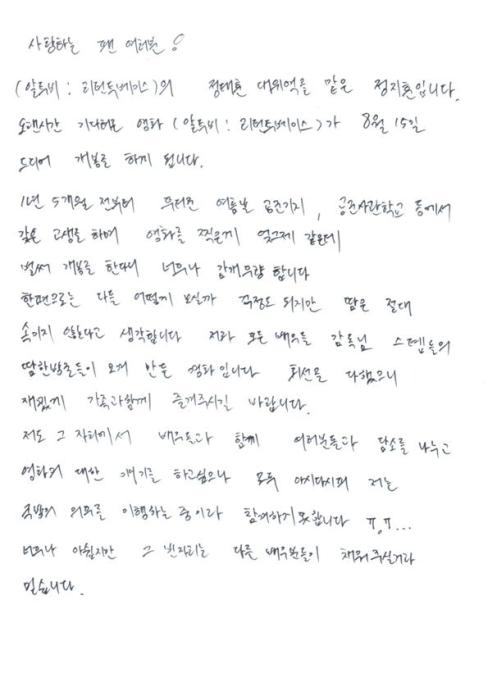 사랑하는 팬 여러분!
(알투비 : 리턴투베이스)의 정태훈 대위역을 맡은 정지훈입니다.
오랜시간 기다려온 영화 (알투비 : 리턴투베이스)가 8월 15일
드디어 개봉을 하게 됩니다.
1년 5개월 전부터 무더운 여름날 공군기지, 공군사관학교 등에서
갖은 고생을 하며 영화를 찍은게 엊그제 같은데
벌써 개봉을 한다니 너무나 감개무량 합니다
한편으로는 다들 어떻게 보실까 걱정도 되지만 땀은 절대
속이지 않는다고 생각합니다 저와 모든 배우들 감독님 스텝들의
땀한방울들이 모여 만든 영화입니다 최선을 다했으니
재밌게 가족과함께 즐겨주시길 바랍니다.
저도 그 자리에서 배우들과 함께 여러분들과 담소를 나누고
영화의 대한 얘기를 하고싶으나 모두 아시다시피 저는
국방의 의무를 이행하는 중이라 함께하지 못합니다 ㅠ.ㅠ...
너무나 아쉽지만 그 빈자리는 다른 배우분들이 채워주실거라
믿습니다.